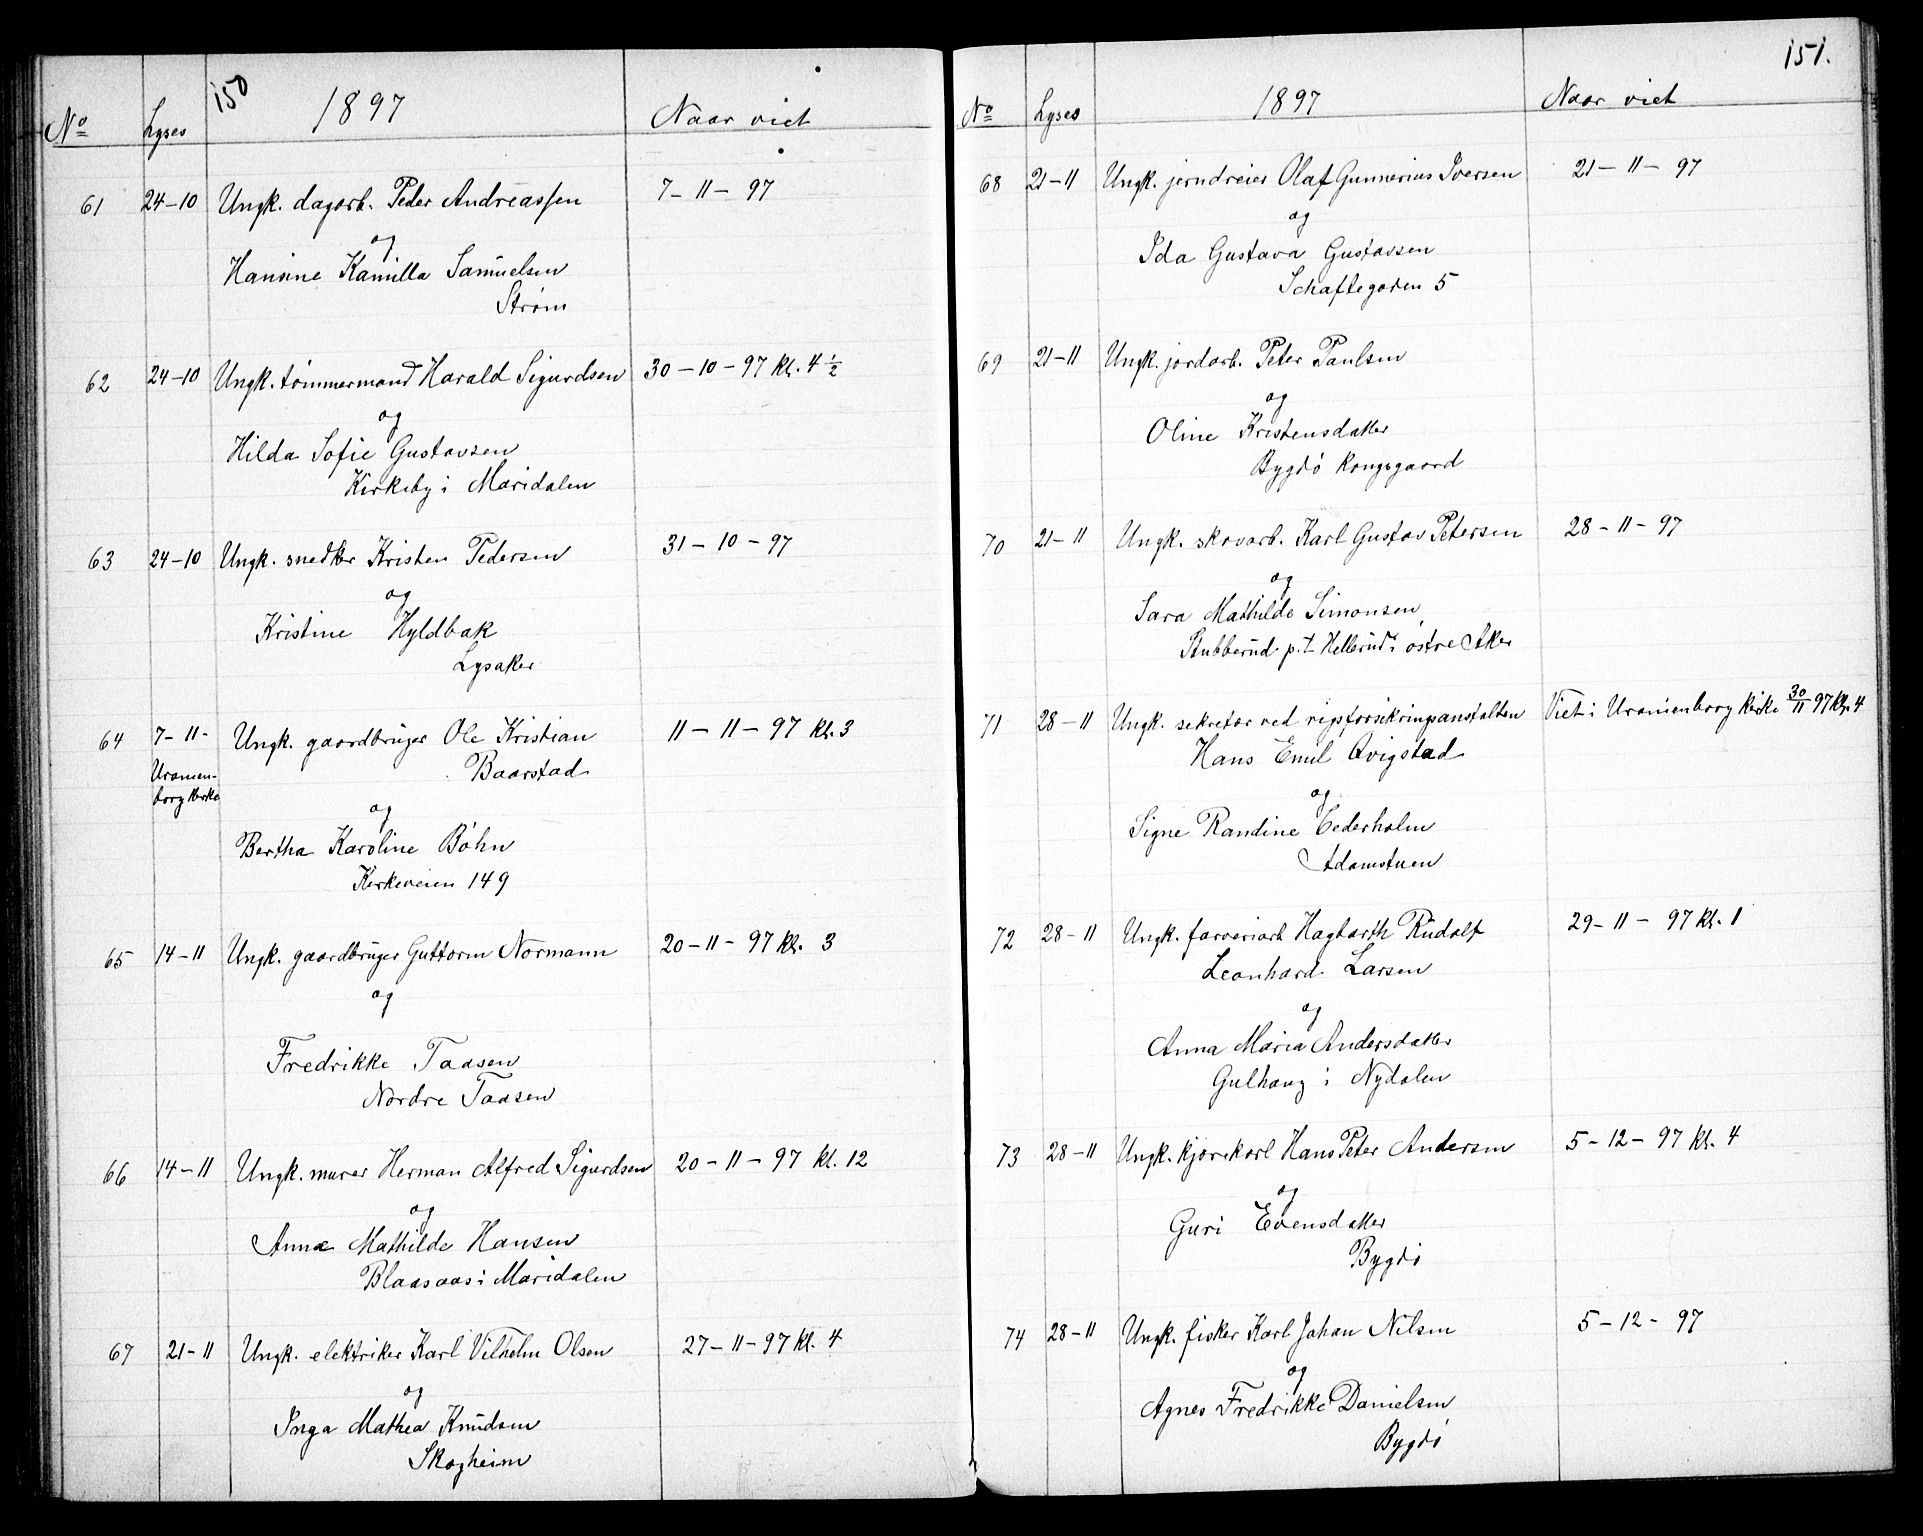 150
No Lyses 1897 Naar viet
61 24-10 Ungk. dagarb. Peder Andreassen 7-11-97
og
Hansine Kamilla Samuelsen
Strøm
62 24-10 Ungk. tømmermand Harald Sigurdsen 30-10-97 kl. 4 1/2
og
Hilda Sofie Gustavsen
Kirkeby i Maridalen
63 24-10 Ungk. snedker Kristen Pedersen 31-10-97
og
Kristine Hyldbak
Lysaker
64 7-11- Ungk. gaardbruger Ole Kristian 11-11-97 kl. 3
Uranien- Baarstad
borg kirke
og
Bertha Karoline Bøhn
Kirkeveien 149
65 14-11 Ungk. gaardbruger Guttorm Normann 20-11-97 kl. 3
og
Fredrikke Taasen
Nordre Taasen
66 14-11 Ungk. murer Herman Alfred Sigurdsen 20-11-97 kl. 12
og
Anna Mathilde Hansen
Blaasaas i Maridalen
67 21-11 Ungk. elektriker Karl Vilhelm Olsen 27-11-97 kl. 4
og
Inga Mathea Knudsen
Skogheim
151.
No Lyses 1897 Naar viet
68 21-11 Ungk. jerndreier Olaf Gunnerius Iversen 21-11-97
og
Ida Gustava Gustavsen
Schaftegaden 5
69 21-11 Ungk. jordarb. Peter Paulsen
og
Oline Kristensdatter
Bygdø Kongsgaard
70 21-11 Ungk. skovarb. Karl Gustav Petersen 28-11-97
og
Sara Mathilde Simonsen
Stubberud p.t. Hellerud i østre Aker
71 28-11 Ungk. sekretær ved rigsforsikringsanstalten Viet i Uranienborg kirke 30/11 97 kl. 4
Hans Emil Qvigstad
og
Signe Randine Cederholm
Adamstuen
72 28-11 Ungk. farveriarb Hagbarth Rudolf 29-11-97 kl. 1
Leonhard Larsen
og
Anna Maria Andersdatter
Gulhaug i Nydalen
73 28-11 Ungk. kjørekarl Hans Peter Andersen 5-12-97 kl. 4
og
Guri Evensdatter
Bygdø
74 28-11 Ungk. fisker Karl Johan Nilsen 5-12-97
og
Agnes Fredrikke Danielsen
Bygdø